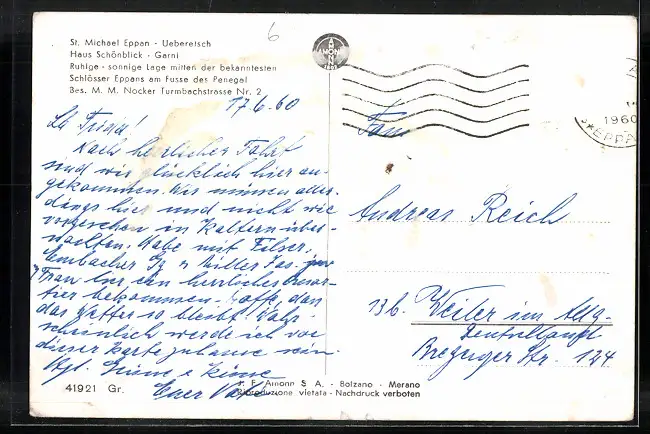 6
St. Michael Eppan - Ueberetsch
Haus Schönblick - Garni
Ruhige - sonnige Lage mitten der bekanntesten
Schlösser Eppans am Fusse des Penegal
Bes. M. M. Nocker Turmbachstrasse Nr. 2
17.6.60
Nach herrlicher Fahrt
sind wir glücklich hier an-
gekommen. Wir müssen aller-
dings hier und nicht wie
vorgesehen in Kaltern über-
nachten. Habe mit Filser,
Embacher
Frau hier ein herrliches Quar-
tier bekommen. Hoffe, dass
das Wetter so bleibt. Wahr-
scheinlich werde ich vor
dieser Karte zuhause sein.
Euer
41921 Gr.
1960
EPPA
Fam
Andreas Reich
13b. Weiler im Allg.
Deutschland
Bregenzer Str. 124
J. F. Amonn S. A. - Bolzano - Merano
Riproduzione vietata - Nachdruck verboten